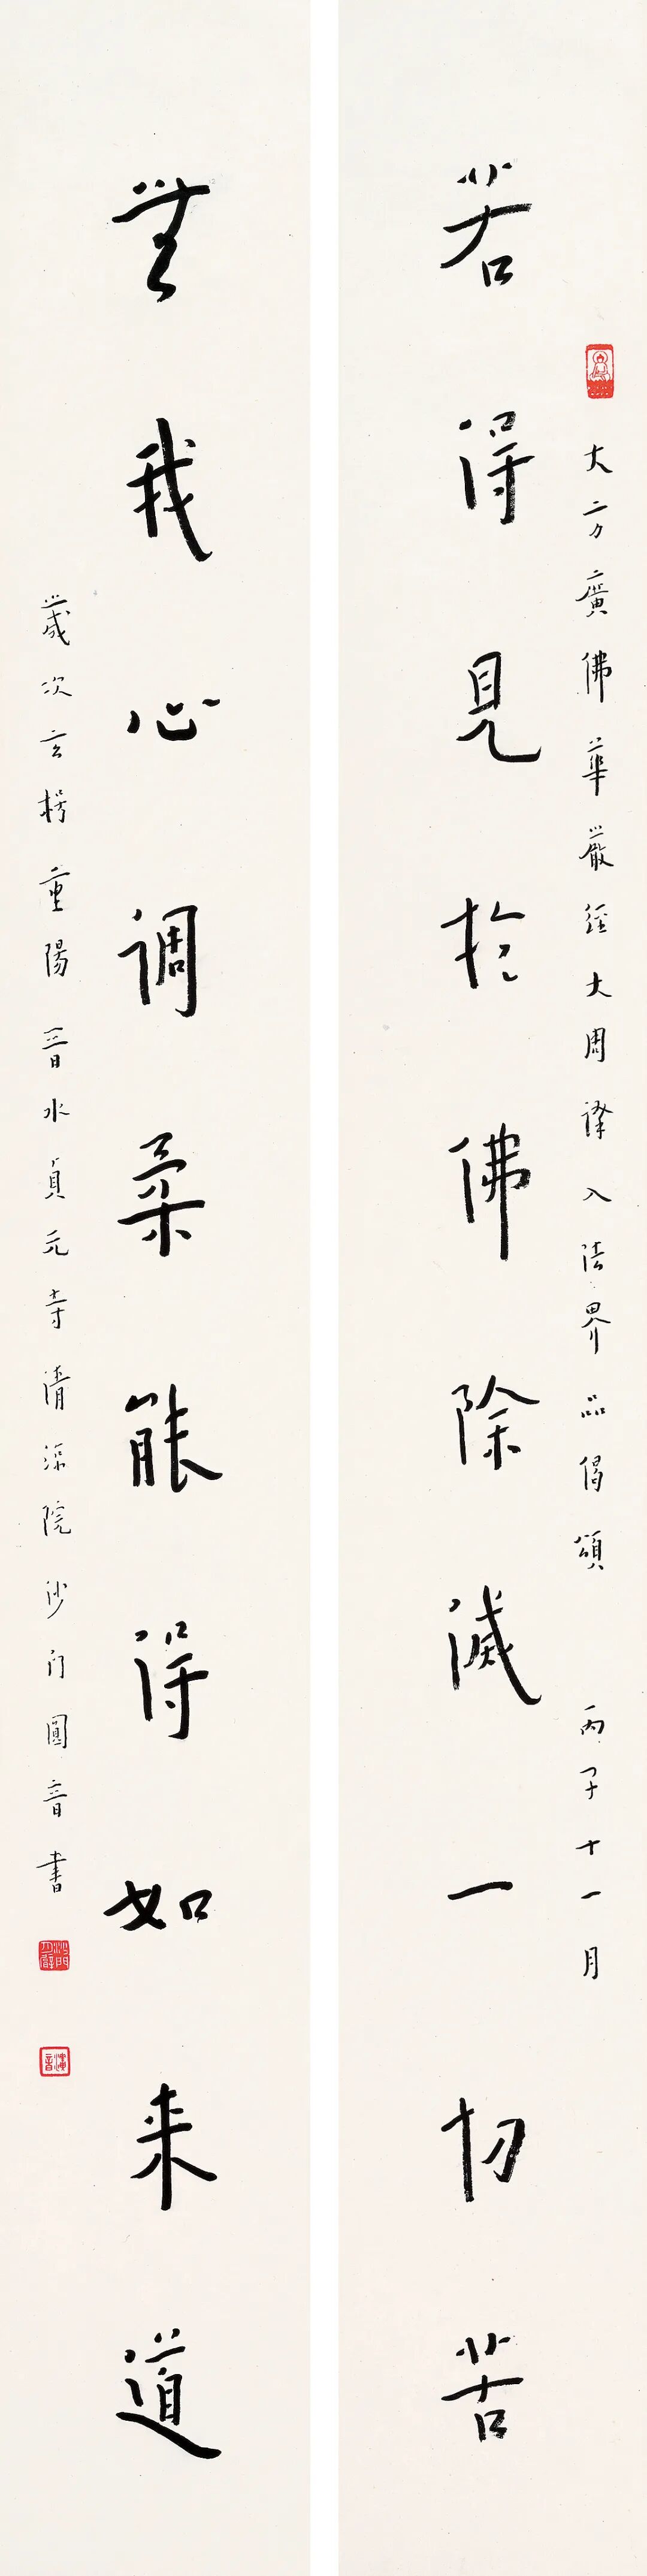 大方廣佛華嚴經大周譯入法界品偈頌 丙子十一月
若得見於佛除滅一切苦
無我心調柔能得如来道
歲次玄枵重陽晉水貞元寺清涼院沙门圓音書